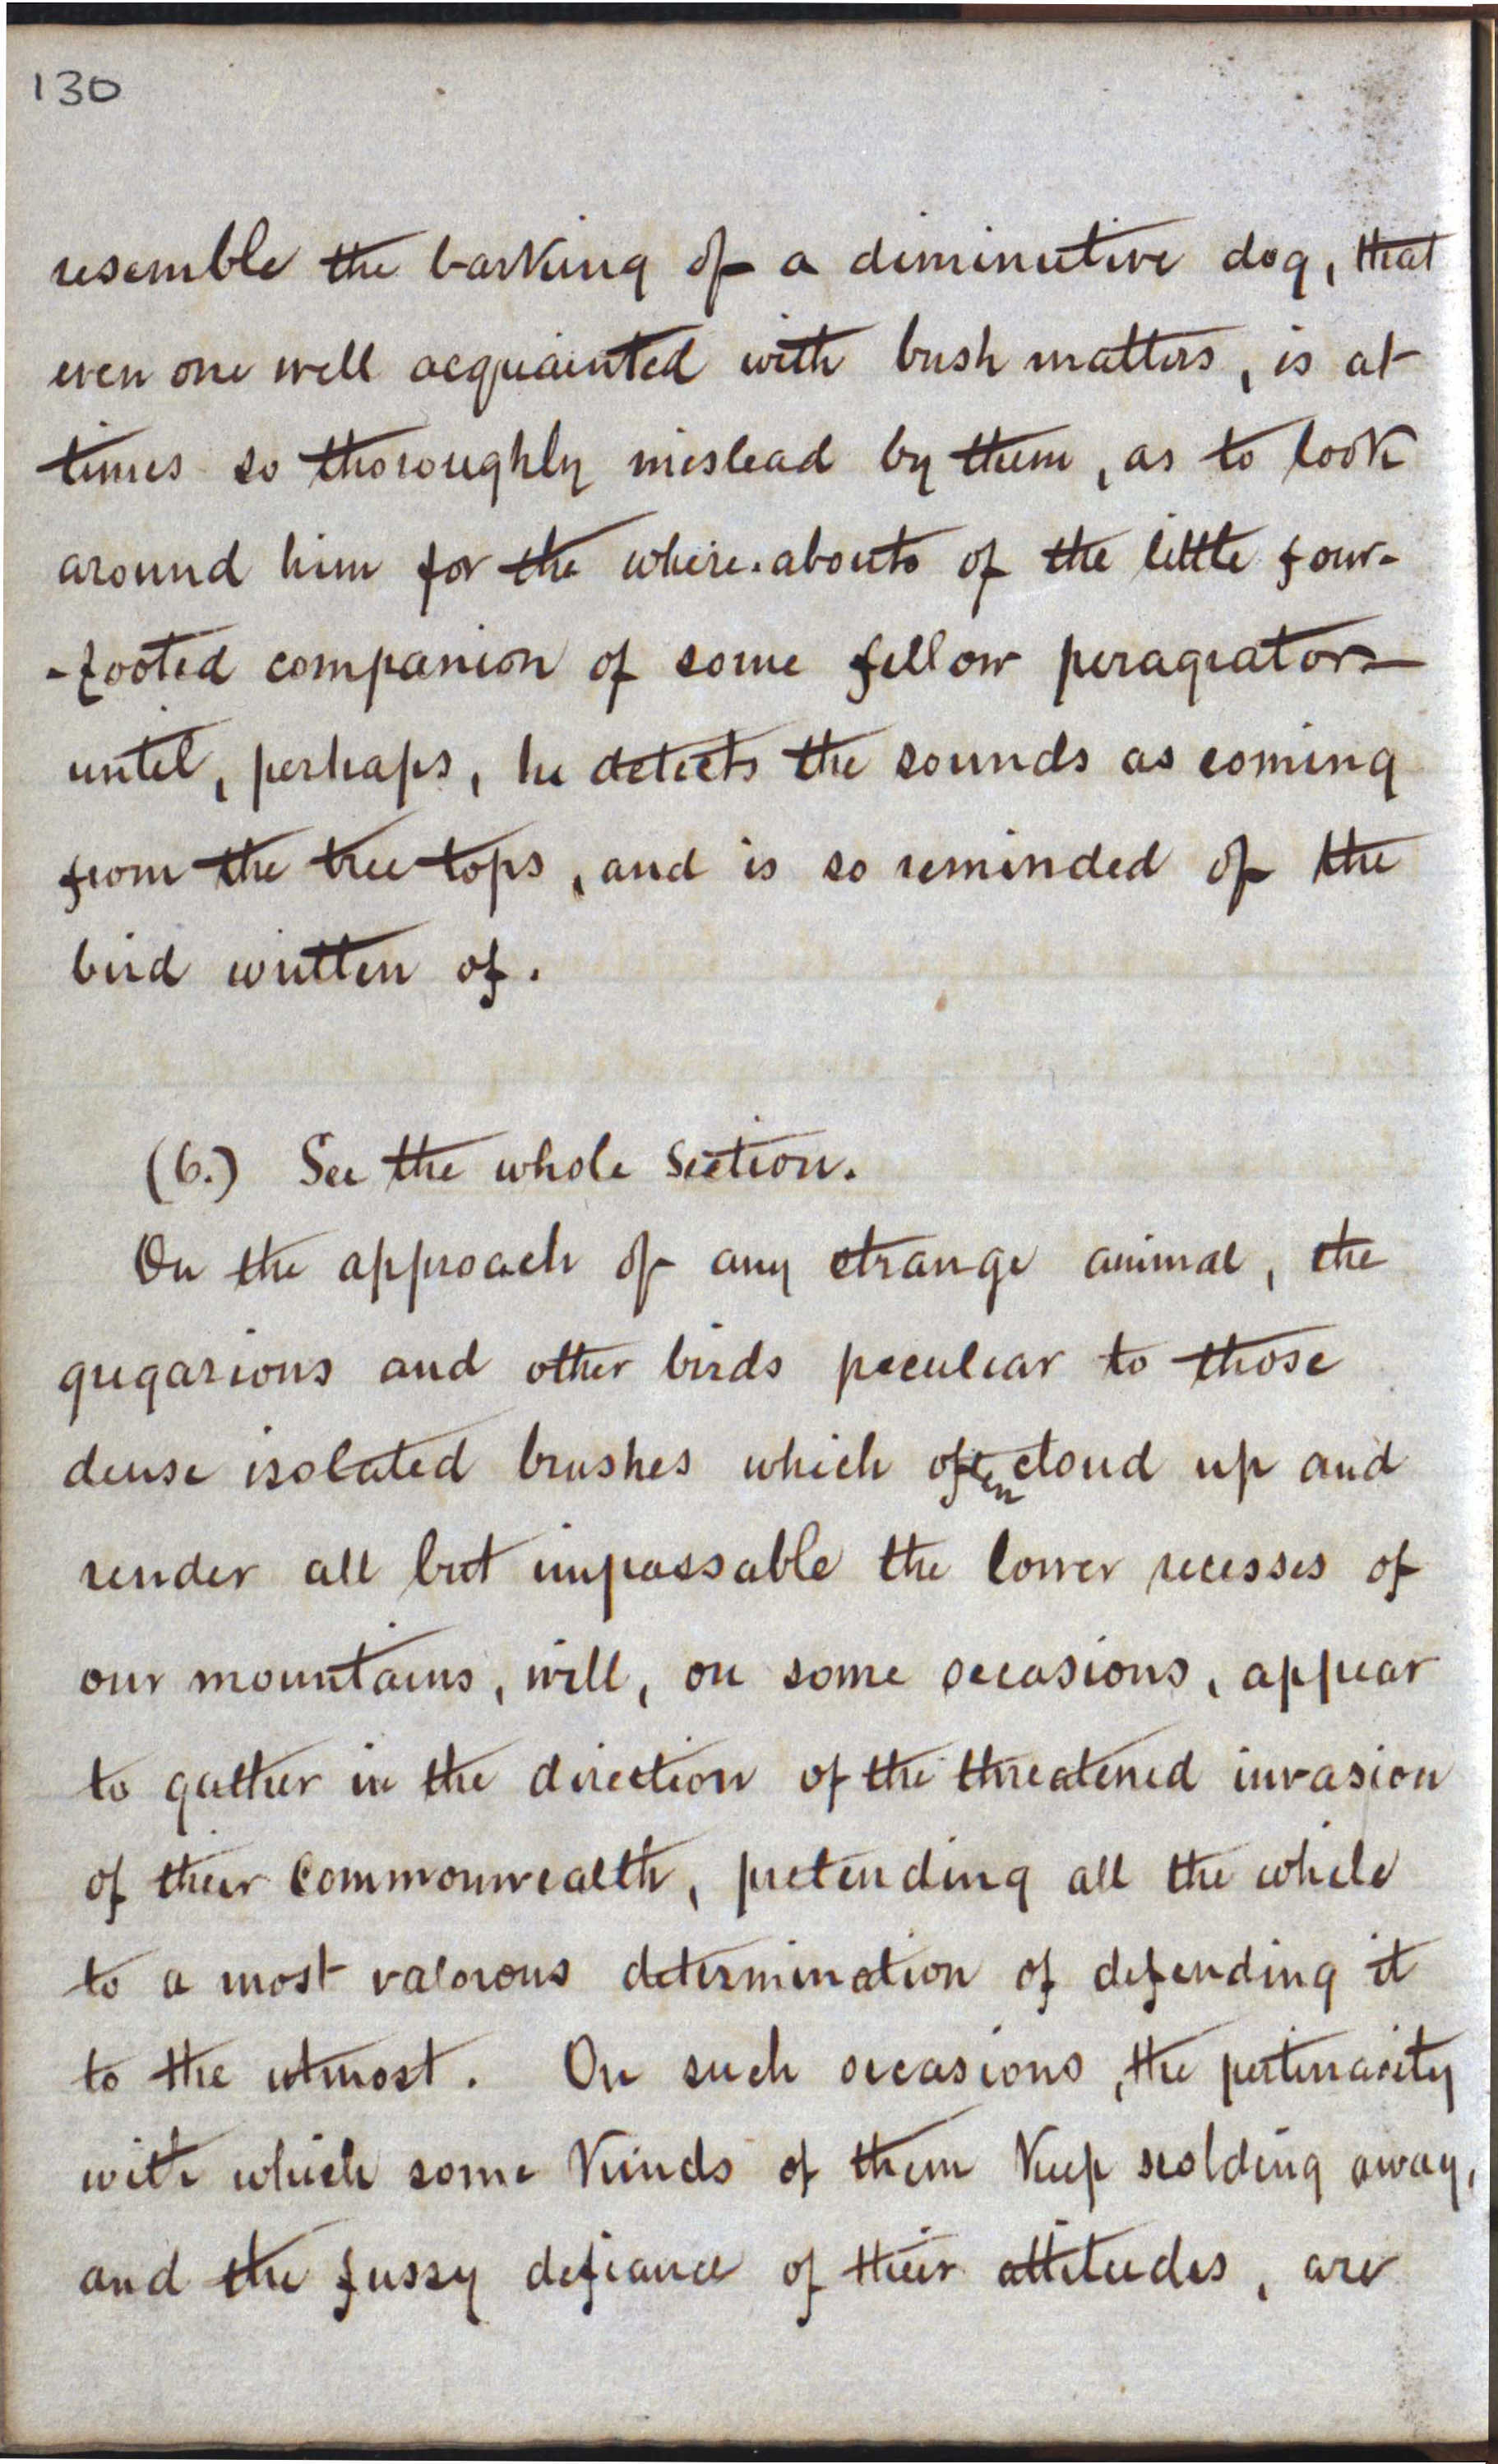 130
resemble the barking of a diminutive dog, that
even one well acquainted with bush matters, is at
times so thoroughly mislead by them, as to look
around him for the where-abouts of the little four-
-footed companion of some fellow peragrator—
until, perhaps, he detects the sounds as coming
from the tree tops, and is so reminded of the
bird written of.
(6.) See the whole Section.
On the approach of any strange animal, the
gregarious and other birds peculiar to those
dense isolated brushes which often cloud up and
render all but impassable the lower recesses of
our mountains, will, on some occasions, appear
to gather in the direction of the threatened invasion
of their Commonwealth, pretending all the while
to a most valorous determination of defending it
to the utmost. On such occasions, the pertinacity
with which some kinds of them keep scolding away,
and the fussy defiance of their attitudes, are